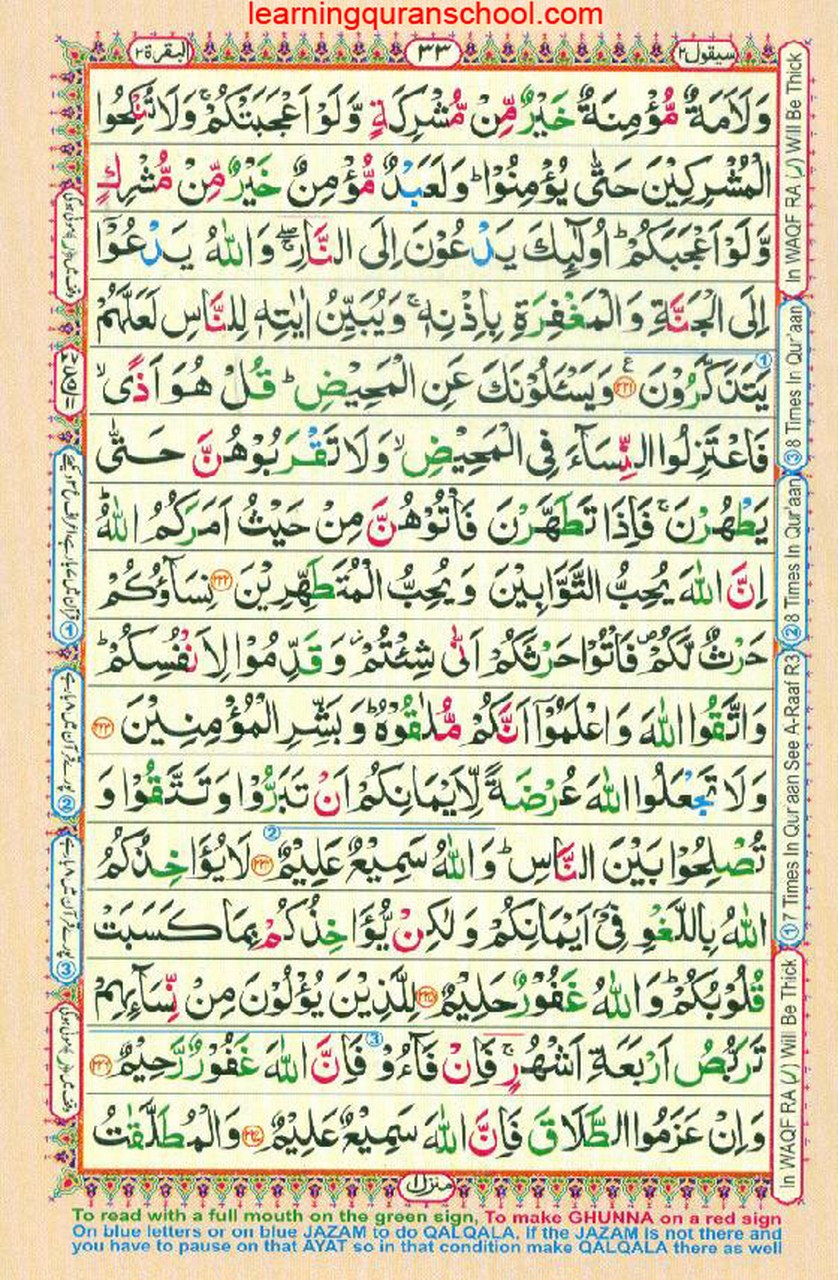 learningquranschool.com
سيقول ٢ ٣٣ البقرة ٢
وَلَاَمَةٌ مُّؤْمِنَةٌ خَيْرٌ مِّنْ مُّشْرِكَةٍ وَّلَوْ اَعْجَبَتْكُمْ ۚ وَلَا تُنْكِحُوا
الْمُشْرِكِيْنَ حَتّٰى يُؤْمِنُوْا ؕ وَلَعَبْدٌ مُّؤْمِنٌ خَيْرٌ مِّنْ مُّشْرِكٍ
وَّلَوْ اَعْجَبَكُمْ ؕ اُولٰٓئِكَ يَدْعُوْنَ اِلَى النَّارِ ۖۚ وَاللّٰهُ يَدْعُوْٓا
اِلَى الْجَنَّةِ وَالْمَغْفِرَةِ بِاِذْنِهٖ ۚ وَيُبَيِّنُ اٰيٰتِهٖ لِلنَّاسِ لَعَلَّهُمْ
يَتَذَكَّرُوْنَ ﴿۲۲۱﴾ وَيَسْـَٔلُوْنَكَ عَنِ الْمَحِيْضِ ؕ قُلْ هُوَ اَذًى ۙ
فَاعْتَزِلُوا النِّسَآءَ فِى الْمَحِيْضِ ۙ وَلَا تَقْرَبُوْهُنَّ حَتّٰى
يَطْهُرْنَ ۚ فَاِذَا تَطَهَّرْنَ فَاْتُوْهُنَّ مِنْ حَيْثُ اَمَرَكُمُ اللّٰهُ ؕ
اِنَّ اللّٰهَ يُحِبُّ التَّوَّابِيْنَ وَيُحِبُّ الْمُتَطَهِّرِيْنَ ﴿۲۲۲﴾ نِسَآؤُكُمْ
حَرْثٌ لَّكُمْ ۪ فَاْتُوْا حَرْثَكُمْ اَنّٰى شِئْتُمْ ۫ وَقَدِّمُوْا لِاَنْفُسِكُمْ ؕ
وَاتَّقُوا اللّٰهَ وَاعْلَمُوْٓا اَنَّكُمْ مُّلٰقُوْهُ ؕ وَبَشِّرِ الْمُؤْمِنِيْنَ ﴿۲۲۳﴾
وَلَا تَجْعَلُوا اللّٰهَ عُرْضَةً لِّاَيْمَانِكُمْ اَنْ تَبَرُّوْا وَتَتَّقُوْا وَ
تُصْلِحُوْا بَيْنَ النَّاسِ ؕ وَاللّٰهُ سَمِيْعٌ عَلِيْمٌ ﴿۲۲۴﴾ لَا يُؤَاخِذُكُمُ
اللّٰهُ بِاللَّغْوِ فِىْٓ اَيْمَانِكُمْ وَلٰكِنْ يُّؤَاخِذُكُمْ بِمَا كَسَبَتْ
قُلُوْبُكُمْ ؕ وَاللّٰهُ غَفُوْرٌ حَلِيْمٌ ﴿۲۲۵﴾ لِلَّذِيْنَ يُؤْلُوْنَ مِنْ نِّسَآئِهِمْ
تَرَبُّصُ اَرْبَعَةِ اَشْهُرٍ ۚ فَاِنْ فَآءُوْ فَاِنَّ اللّٰهَ غَفُوْرٌ رَّحِيْمٌ ﴿۲۲۶﴾
وَاِنْ عَزَمُوا الطَّلَاقَ فَاِنَّ اللّٰهَ سَمِيْعٌ عَلِيْمٌ ﴿۲۲۷﴾ وَالْمُطَلَّقٰتُ
منزل ١
In WAQF RA (ر) Will Be Thick
③ 8 Times In Qur'aan
② 8 Times In Qur'aan
① 7 Times In Qur'aan See A-Raaf R3
In WAQF RA (ر) Will Be Thick
To read with a full mouth on the green sign, To make GHUNNA on a red sign
On blue letters or on blue JAZAM to do QALQALA. If the JAZAM is not there and
you have to pause on that AYAT so in that condition make QALQALA there as well